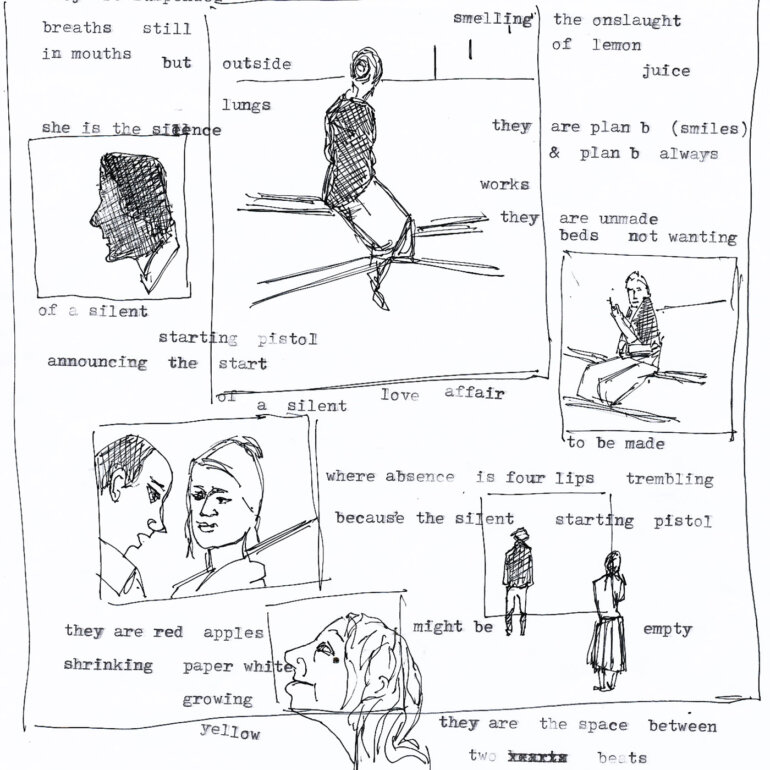 breaths still
in mouths but outside
lungs
she is the silence
of a silent
starting pistol
announcing the start
of a silent love affair
smelling the onslaught
of lemon
juice
they are plan b (smiles)
& plan b always
works
they are unmade
beds not wanting
to be made
where absence is four lips trembling
because the silent starting pistol
might be empty
they are red apples
shrinking paper white
growing
yellow
they are the space between
two beats